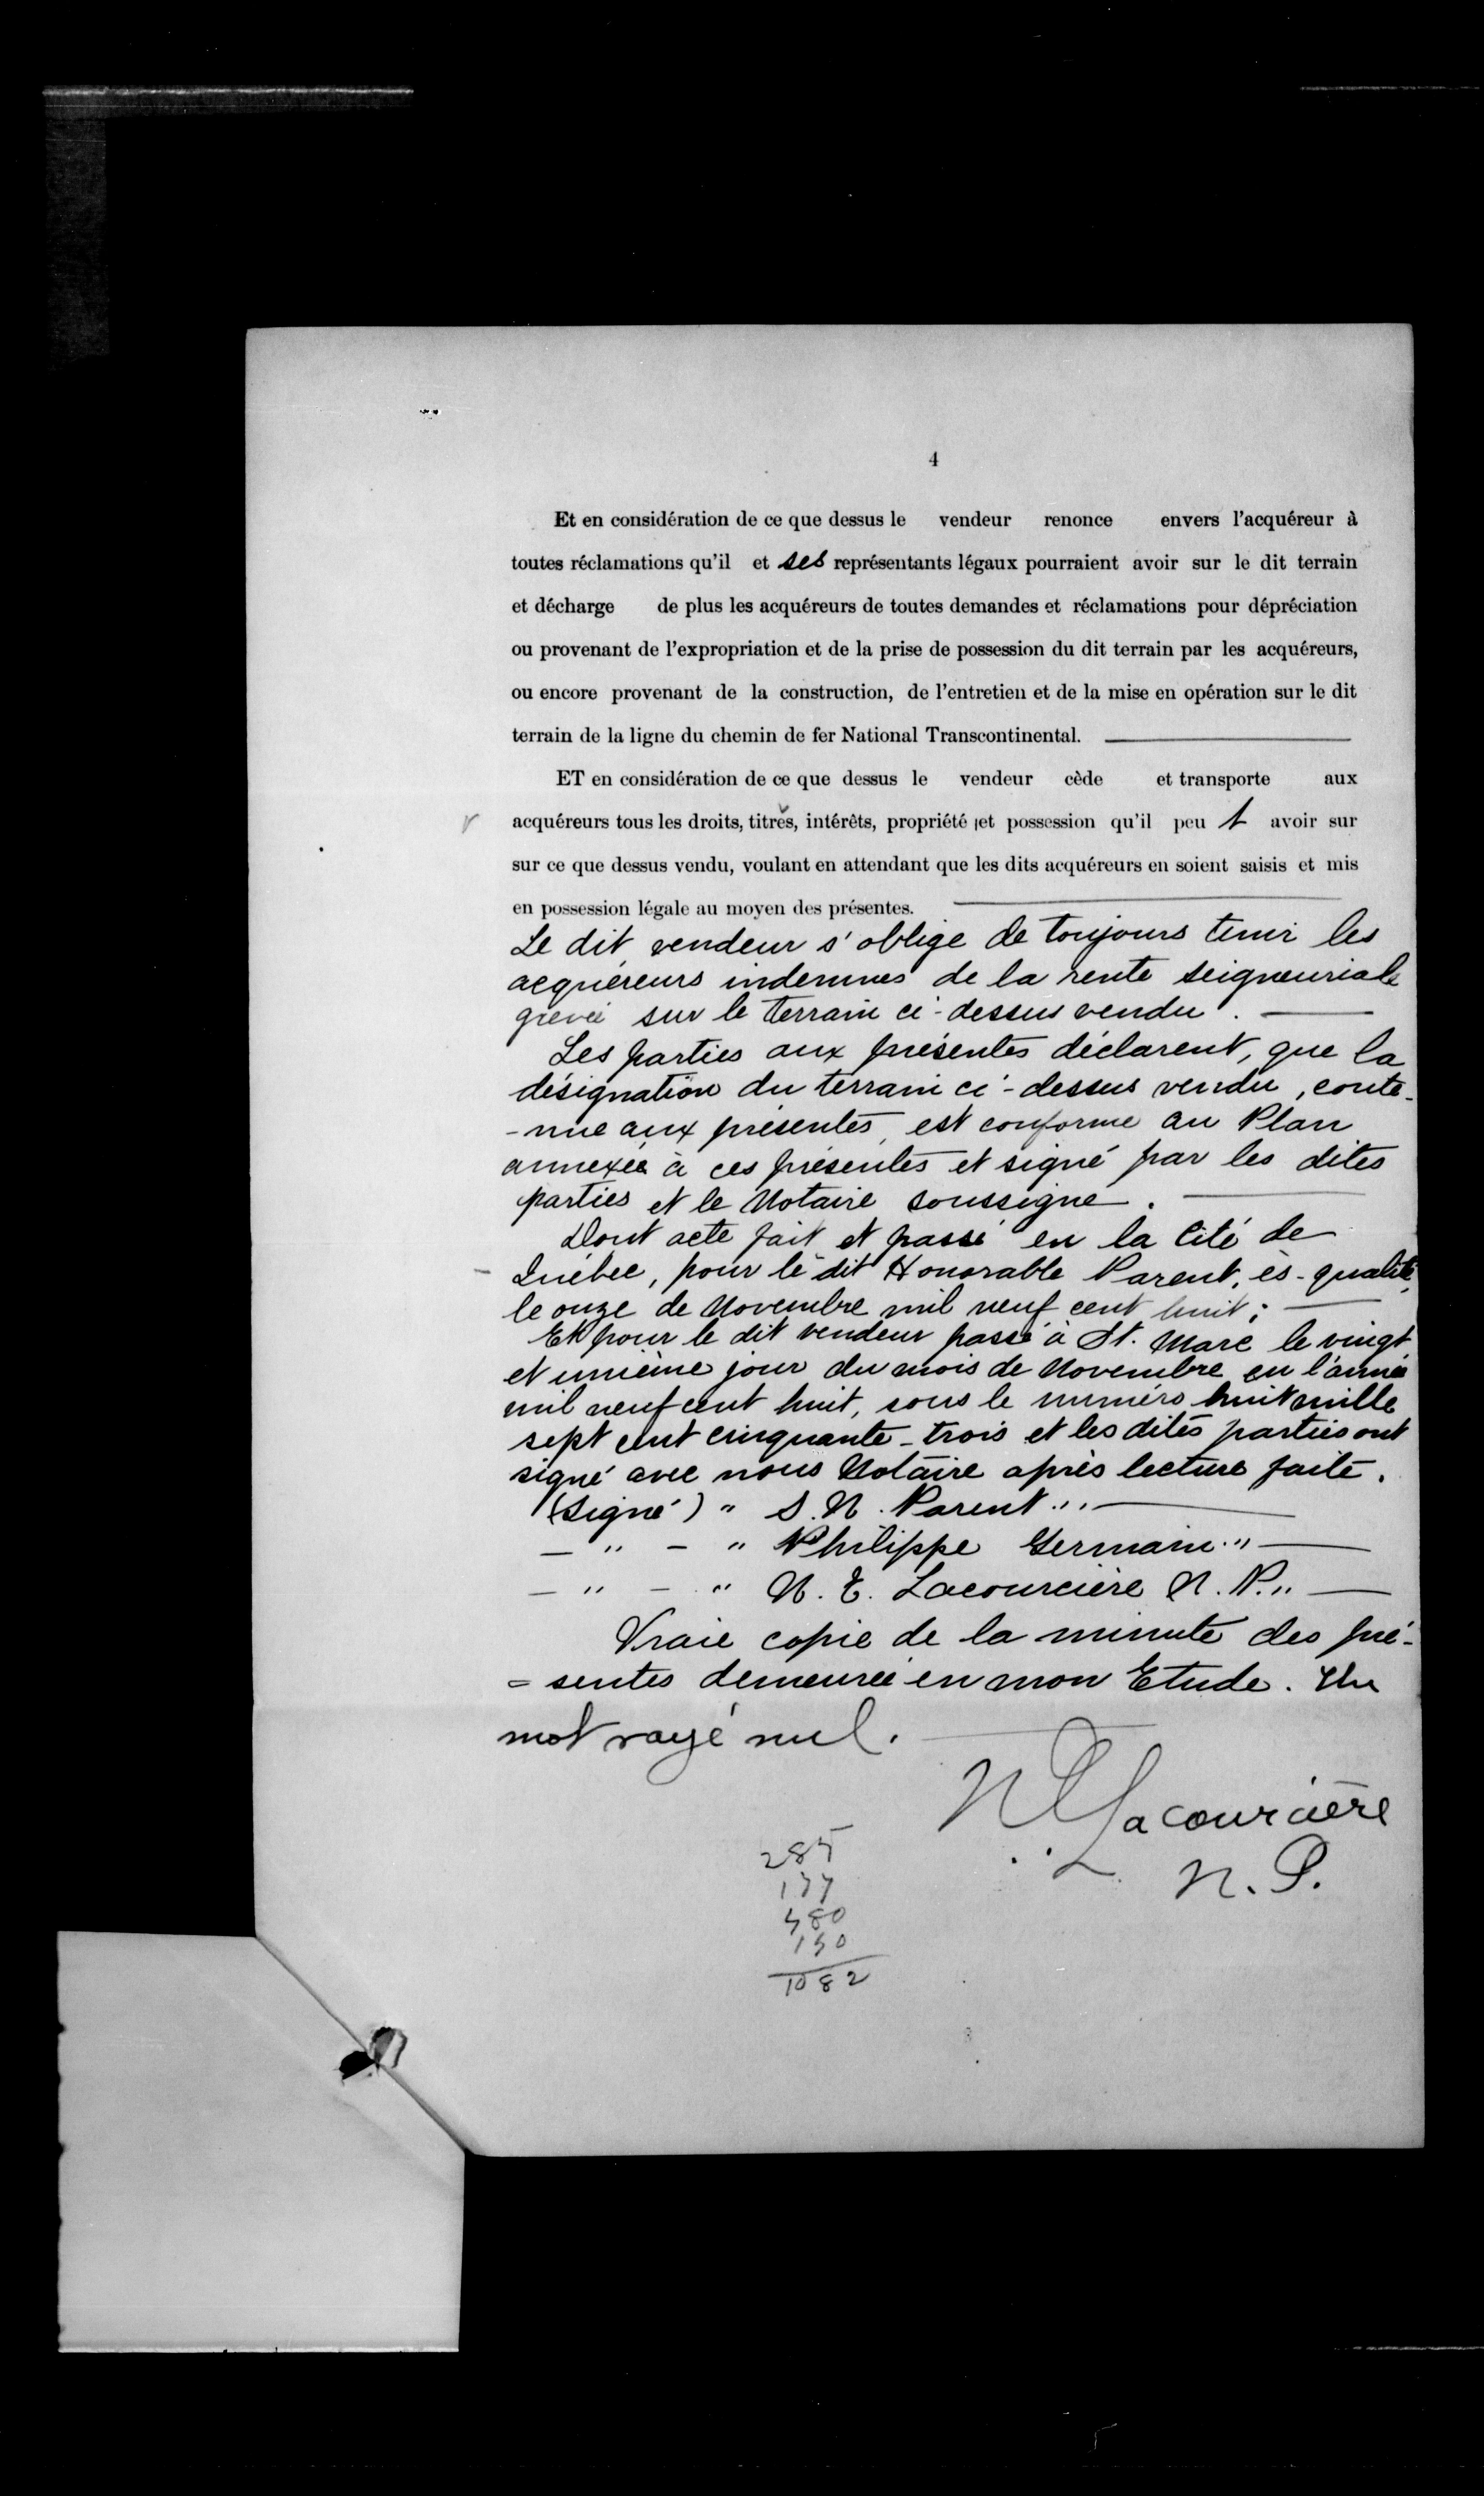 4
Et en considération de ce que dessus le vendeur renonce envers l'acquéreur à
toutes réclamations qu'il et ses représentants légaux pourraient avoir sur le dit terrain
et décharge de plus les acquéreurs de toutes demandes et réclamations pour dépréciation
ou provenant de l'expropriation et de la prise de possession du dit terrain par les acquéreurs,
ou encore provenant de la construction, de l'entretien et de la mise en opération sur le dit
terrain de la ligne du chemin de fer National Transcontinental.
ET en considération de ce que dessus le vendeur cède et transporte aux
acquéreurs tous les droits, titres, intérêts, propriété et possession qu'il peu t avoir sur
sur ce que dessus vendu, voulant en attendant que les dits acquéreurs en soient saisis et mis
en possession légale au moyen des présentes.
Le dit vendeur s'oblige de toujours tenir les
acquéreurs indemnes de la rente seigneuriale
grevée sur le terrain ci-dessus vendu.
Les parties aux présentes déclarent, que la
désignation du terrain ci-dessus vendu, conte-
-nue aux présentes, est conforme au Plan
annexée à ces présentes et signé par les dites
parties et le Notaire soussigné.
Dont acte fait et passé en la Cité de
Québec, pour le dit Honorable Parent, ès-qualité,
le onze de Novembre mil neuf cent huit;
Et pour le dit vendeur passé à St. Marc le vingt
et unième jour du mois de Novembre en l'année
mil neuf cent huit, sous le numéro huit mille
sept cent cinquante-trois et les dites parties ont
signé avec nous Notaire après lecture faite.
(Signé) " S. N. Parent "
— " — " Philippe Germain "
— " — " N. E. Lacourcière N. P. "
Vraie copie de la minute des pré-
= sentes demeurée en mon Etude. Un
mot rayé nul.
N E Lacourcière
N. P.
285
177
480
150
1082